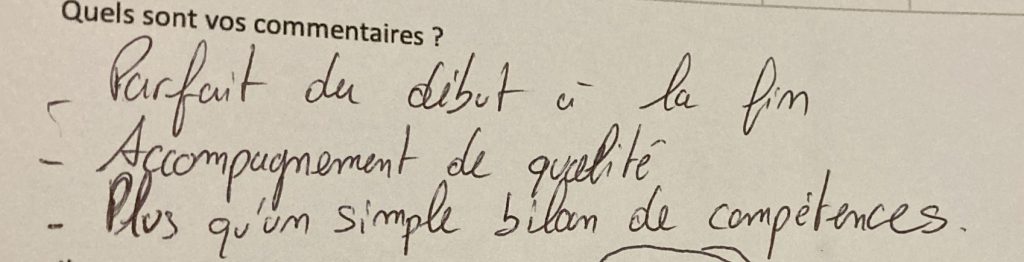 Quels sont vos commentaires ?
- Parfait du début à la fin
- Accompagnement de qualité
- Plus qu'un simple bilan de compétences.